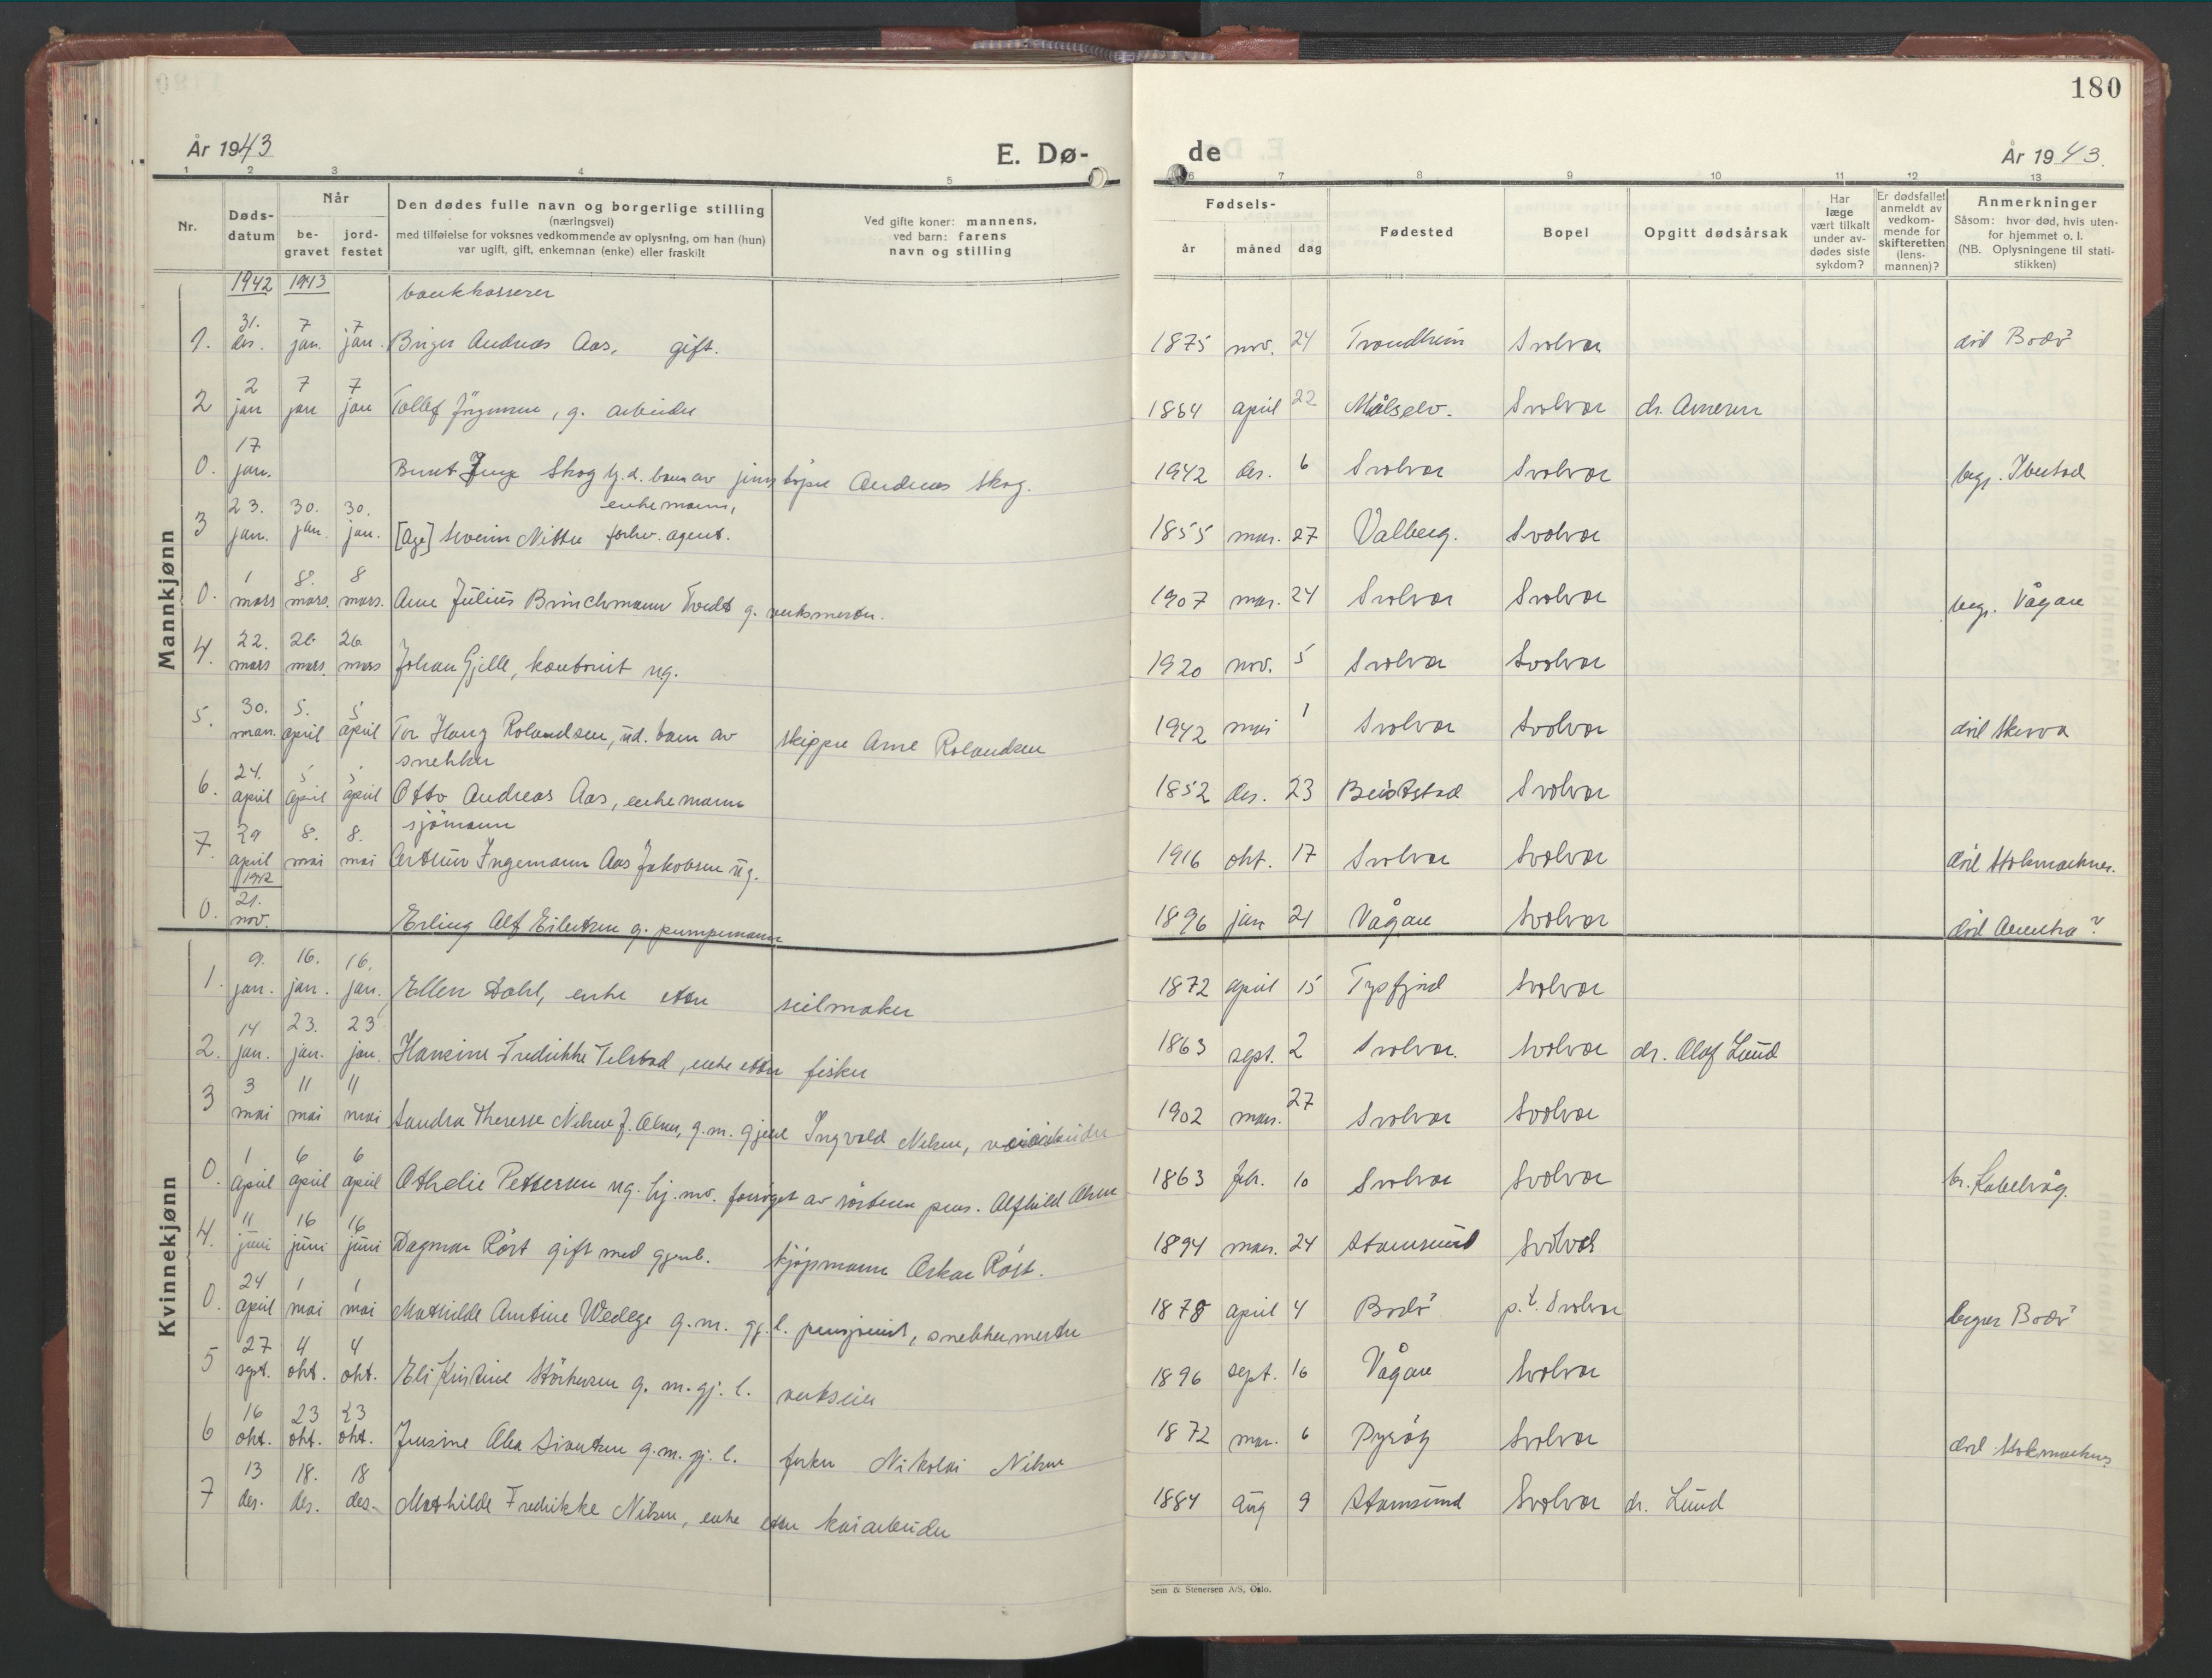 180
År 1943
E. Dø-
de
År 1943.
1 2 3 4 5
6 7 8 9 10 11 12 13
Nr.
Døds-
datum
Når
be-
gravet
jord-
festet
Den dødes fulle navn og borgerlige stilling
(næringsvei)
med tilføielse for voksnes vedkommende av oplysning, om han (hun)
var ugift, gift, enkemnan (enke) eller fraskilt
Ved gifte koner: mannens,
ved barn: farens
navn og stilling
Fødsels-
år
måned
dag
Fødested
Bopel
Opgitt dødsårsak
Har
læge
vært tilkalt
under av-
dødes siste
sykdom?
Er dødsfallet
anmeldt av
vedkom-
mende for
skifteretten
(lens-
mannen)?
Anmerkninger
Såsom: hvor død, hvis uten-
for hjemmet o. l.
(NB. Oplysningene til stati-
stikken)
Mannkjønn
1942 1943
bankkasserer
1. 31. des. 7 jan. 7 jan. Birger Andreas Aas, gift. 1875 nov. 24 Trondheim Svolvær död Bodö
2 2 jan 7 jan 7 jan Tollef Jörgensen, g. arbeider 1864 april 22 Målselv. Svolvær dr. Arnesen
0. 17 jan. Bernt Inge Skog hj.d. barn av Andreas Skog. 1942 des. 6 Svolvær Svolvær begr. Ibestad
enkemann,
3 23. jan. 30. jan. 30. jan. [Age] Severin Nitter forhv. agent. 1855 mars. 27 Valberg. Svolvær
0. 1 mars 8. mars. 8 mars. Arne Julius Brinchmann Tvedt g. verksmester. 1907 mars. 24 Svolvær Svolvær begr. Vågan
4. 22. mars 26 mars. 26 mars Johan Gjille, kontorist ug. 1920 nov. 5 Svolvær Svolvær
5. 30. mars. 5. april 5 april Tor Haug Rolandsen, ud. barn av skipper Arne Rolandsen 1942 mai 1 Svolvær Svolvær död Skerva
snekker
6. 24. april 5 april 5 april Otto Andreas Aas, enkemann 1852 des. 23 Beitstad Svolvær
sjömann
7. 29 april 8. mai 8. mai Arthur Ingemann Aas Jakobsen ug. 1916 okt. 17 Svolvær Svolvær död Stokmarknes.
1942
0. 21. nov. Erling Alf Eilertsen g. pumpemann 1896 jan 21 Vågan Svolvær död Amerika?
Kvinnekjønn
1. 9. jan. 16. jan. 16. jan. Ellen Dahl, enke etter seilmaker 1872 april 15 Tysfjord Svolvær
2. 14 jan. 23. jan. 23 jan. Hansine Fredrikke Telstad, enke etter fisker 1863 sept. 2 Svolvær. Svolvær dr. Olaf Lund
3 3 mai 11 mai 11 mai Sandra Therese Nilsen f. Olsen, g.m. gjenl Ingvald Nilsen, veiarbeider 1902 mars. 27 Svolvær Svolvær
0. 1 april 6 april 6 april Othelie Pettersen ug. hj. mv. forsörget av Alfhild Olsen 1863 febr. 10 Svolvær Svolvær br. Kabelvåg.
4. 11 juni 16 juni 16 juni Dagmar Röst gift med gjenl. kjöpmann Oskar Röst. 1894 mars. 24 Stamsund Svolvær
0. 24 april 1 mai 1 mai Mathilde Antine Wedege g. m. gj. l. pensjonist, snekkermester 1878 april 4 Bodö p.t. Svolvær begrav Bodö
5 27 sept. 4 okt. 4 okt. Eli Kristine Störkersen g. m. gj. l. verkseier 1896 sept. 16 Vågan Svolvær
6 16 okt. 23 okt. 23 okt. Jensine Olea Sivertsen g. m. gj. l. fisker Nikolai Nilsen 1872 mars. 6 Dyröy Svolvær död Stokmarknes
7 13 des. 18. des. 18 des. Mathilde Fredrikke Nilsen, enke etter kaiarbeider 1884 aug 9 Stamsund Svolvær dr. Lund
Sem & Stenersen A/S, Oslo.